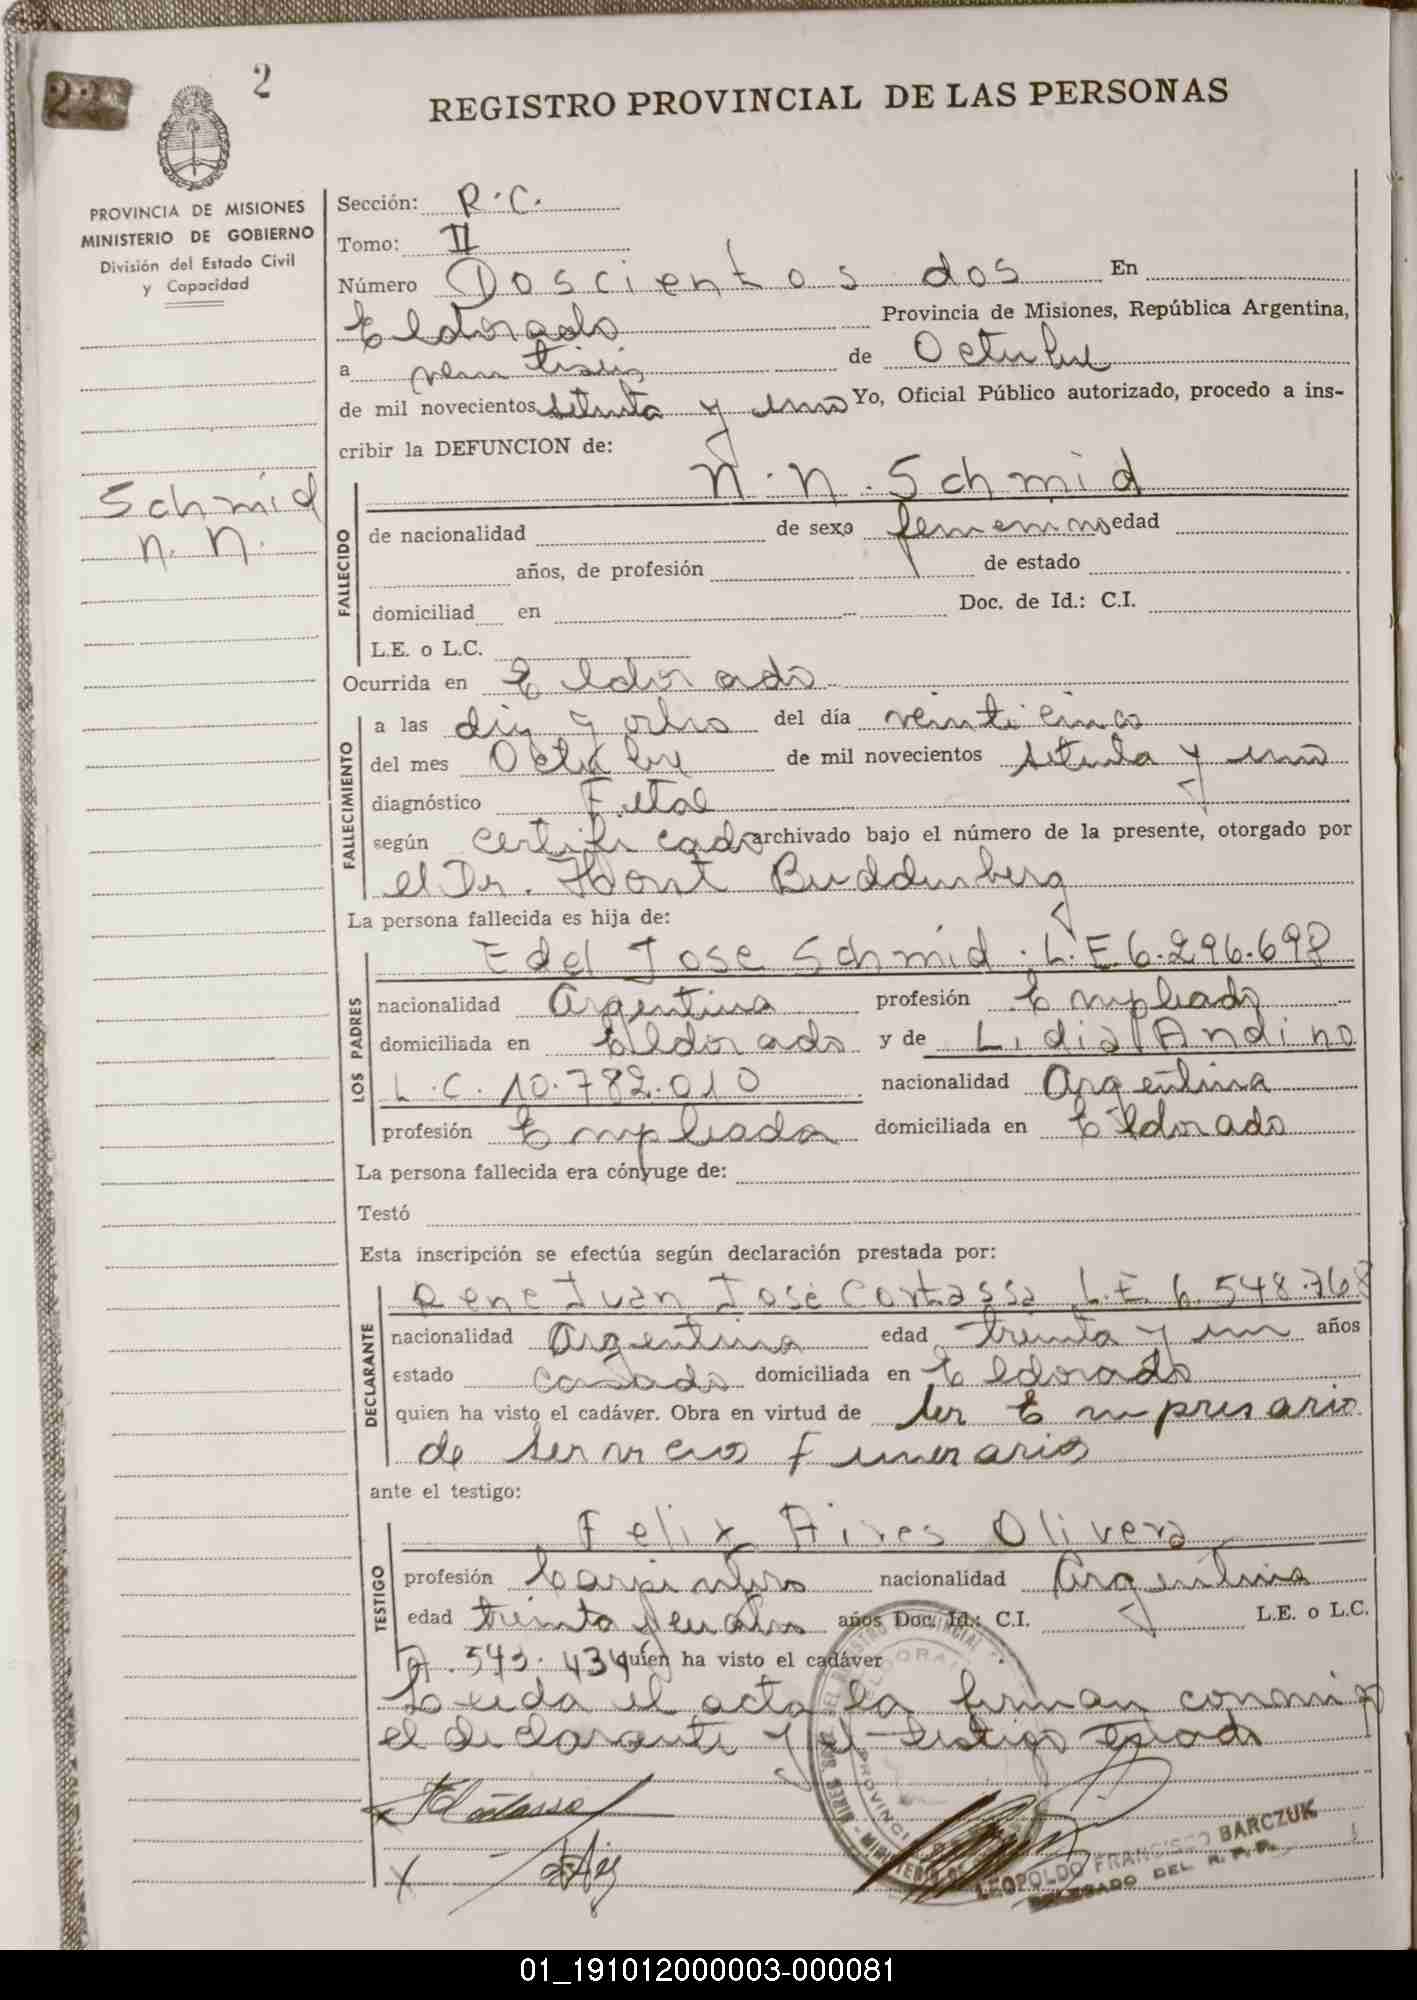 2
REGISTRO PROVINCIAL DE LAS PERSONAS
PROVINCIA DE MISIONES
MINISTERIO DE GOBIERNO
División del Estado Civil
y Capacidad
Schmid
N. N.
Sección: R.C.
Tomo: II
Número Doscientos dos En
Eldorado Provincia de Misiones, República Argentina,
a veintiseis de Octubre
de mil novecientos setenta y uno Yo, Oficial Público autorizado, procedo a ins-
cribir la DEFUNCION de:
N. N. Schmid
FALLECIDO
de nacionalidad de sexo femenino edad
años, de profesión de estado
domiciliad en Doc. de Id.: C.I.
L.E. o L.C.
Ocurrida en Eldorado
FALLECIMIENTO
a las diez y ocho del día veinticinco
del mes Octubre de mil novecientos setenta y uno
diagnóstico Fetal
según certificado archivado bajo el número de la presente, otorgado por
el Dr. Horst Buddenberg
La persona fallecida es hija de:
LOS PADRES
Edel Jose Schmid. L.E. 6.296.698
nacionalidad Argentina profesión Empleado
domiciliada en Eldorado y de Lidia Andino
L.C. 10.782.010 nacionalidad Argentina
profesión Empleada domiciliada en Eldorado
La persona fallecida era cónyuge de:
Testó
Esta inscripción se efectúa según declaración prestada por:
DECLARANTE
Rene Juan José Cortassa L.E. 6.548.768
nacionalidad Argentina edad treinta y un años
estado casado domiciliada en Eldorado
quien ha visto el cadáver. Obra en virtud de ser Empresario
de servicios funerarios
ante el testigo:
TESTIGO
Felix Aires Olivera
profesión Carpintero nacionalidad Argentina
edad treinta y cuatro años Doc. Id.: C.I. L.E. o L.C.
7.543.434 quién ha visto el cadáver
Leida el acta la firman conmigo
el declarante y el testigo
LEOPOLDO FRANCISCO BARCZUK
DELEGADO DEL R.P.P.
01_191012000003-000081